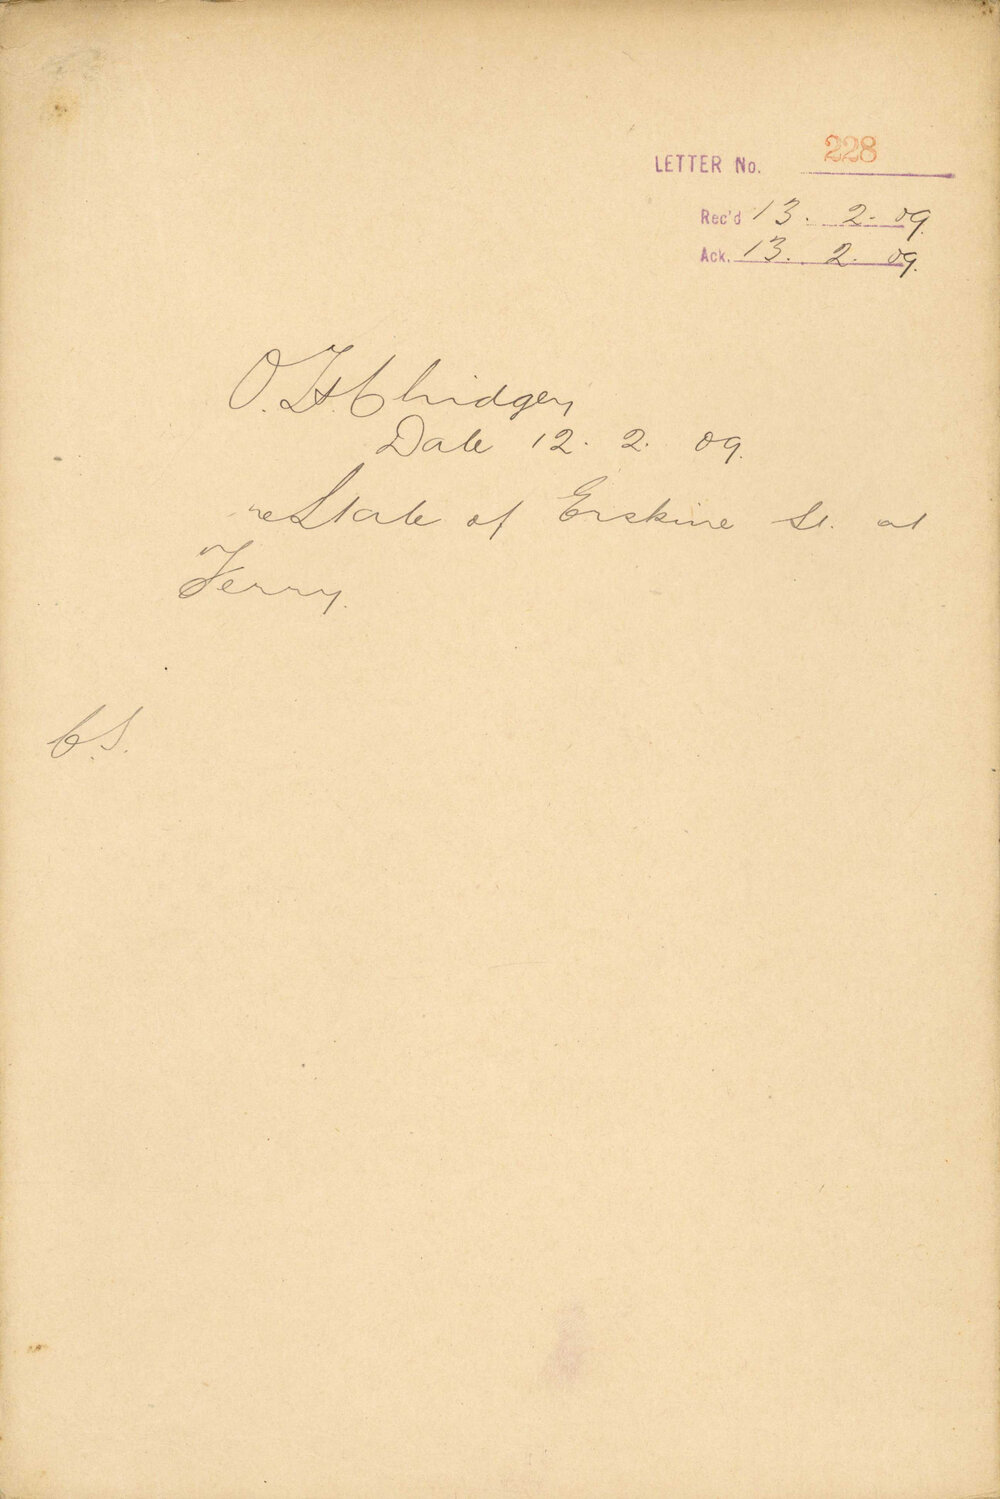 LETTER No. 228
Rec'd 13. 2. 09.
Ack. 13. 2. 09.
O. H. Chidgey
Date 12. 2. 09.
re State of Erskine St. at
Ferry.
C.S.